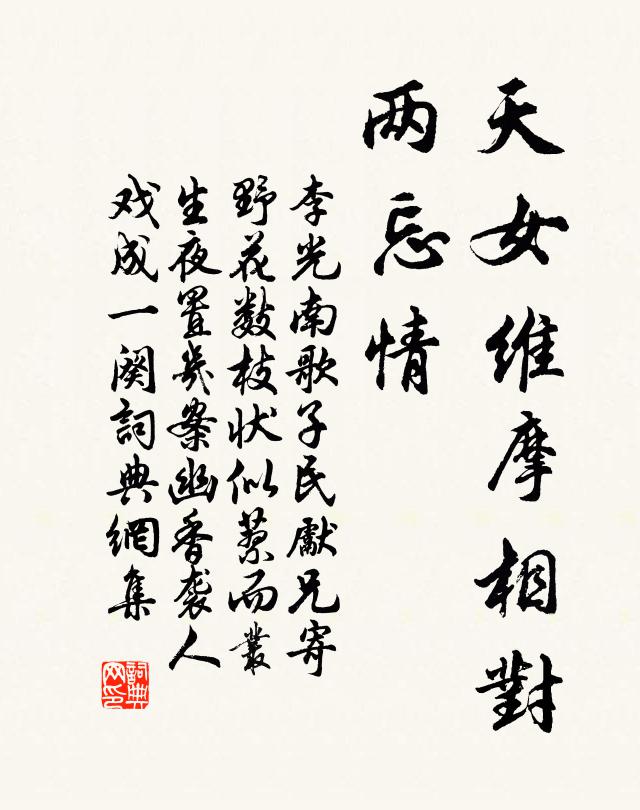 天女维摩相對
两忘情
李光南歌子民獻兄寄
野花數枝状似蓼而叢
生夜置幾案幽香袭人
戏成一阕詞典網集
詞典网印